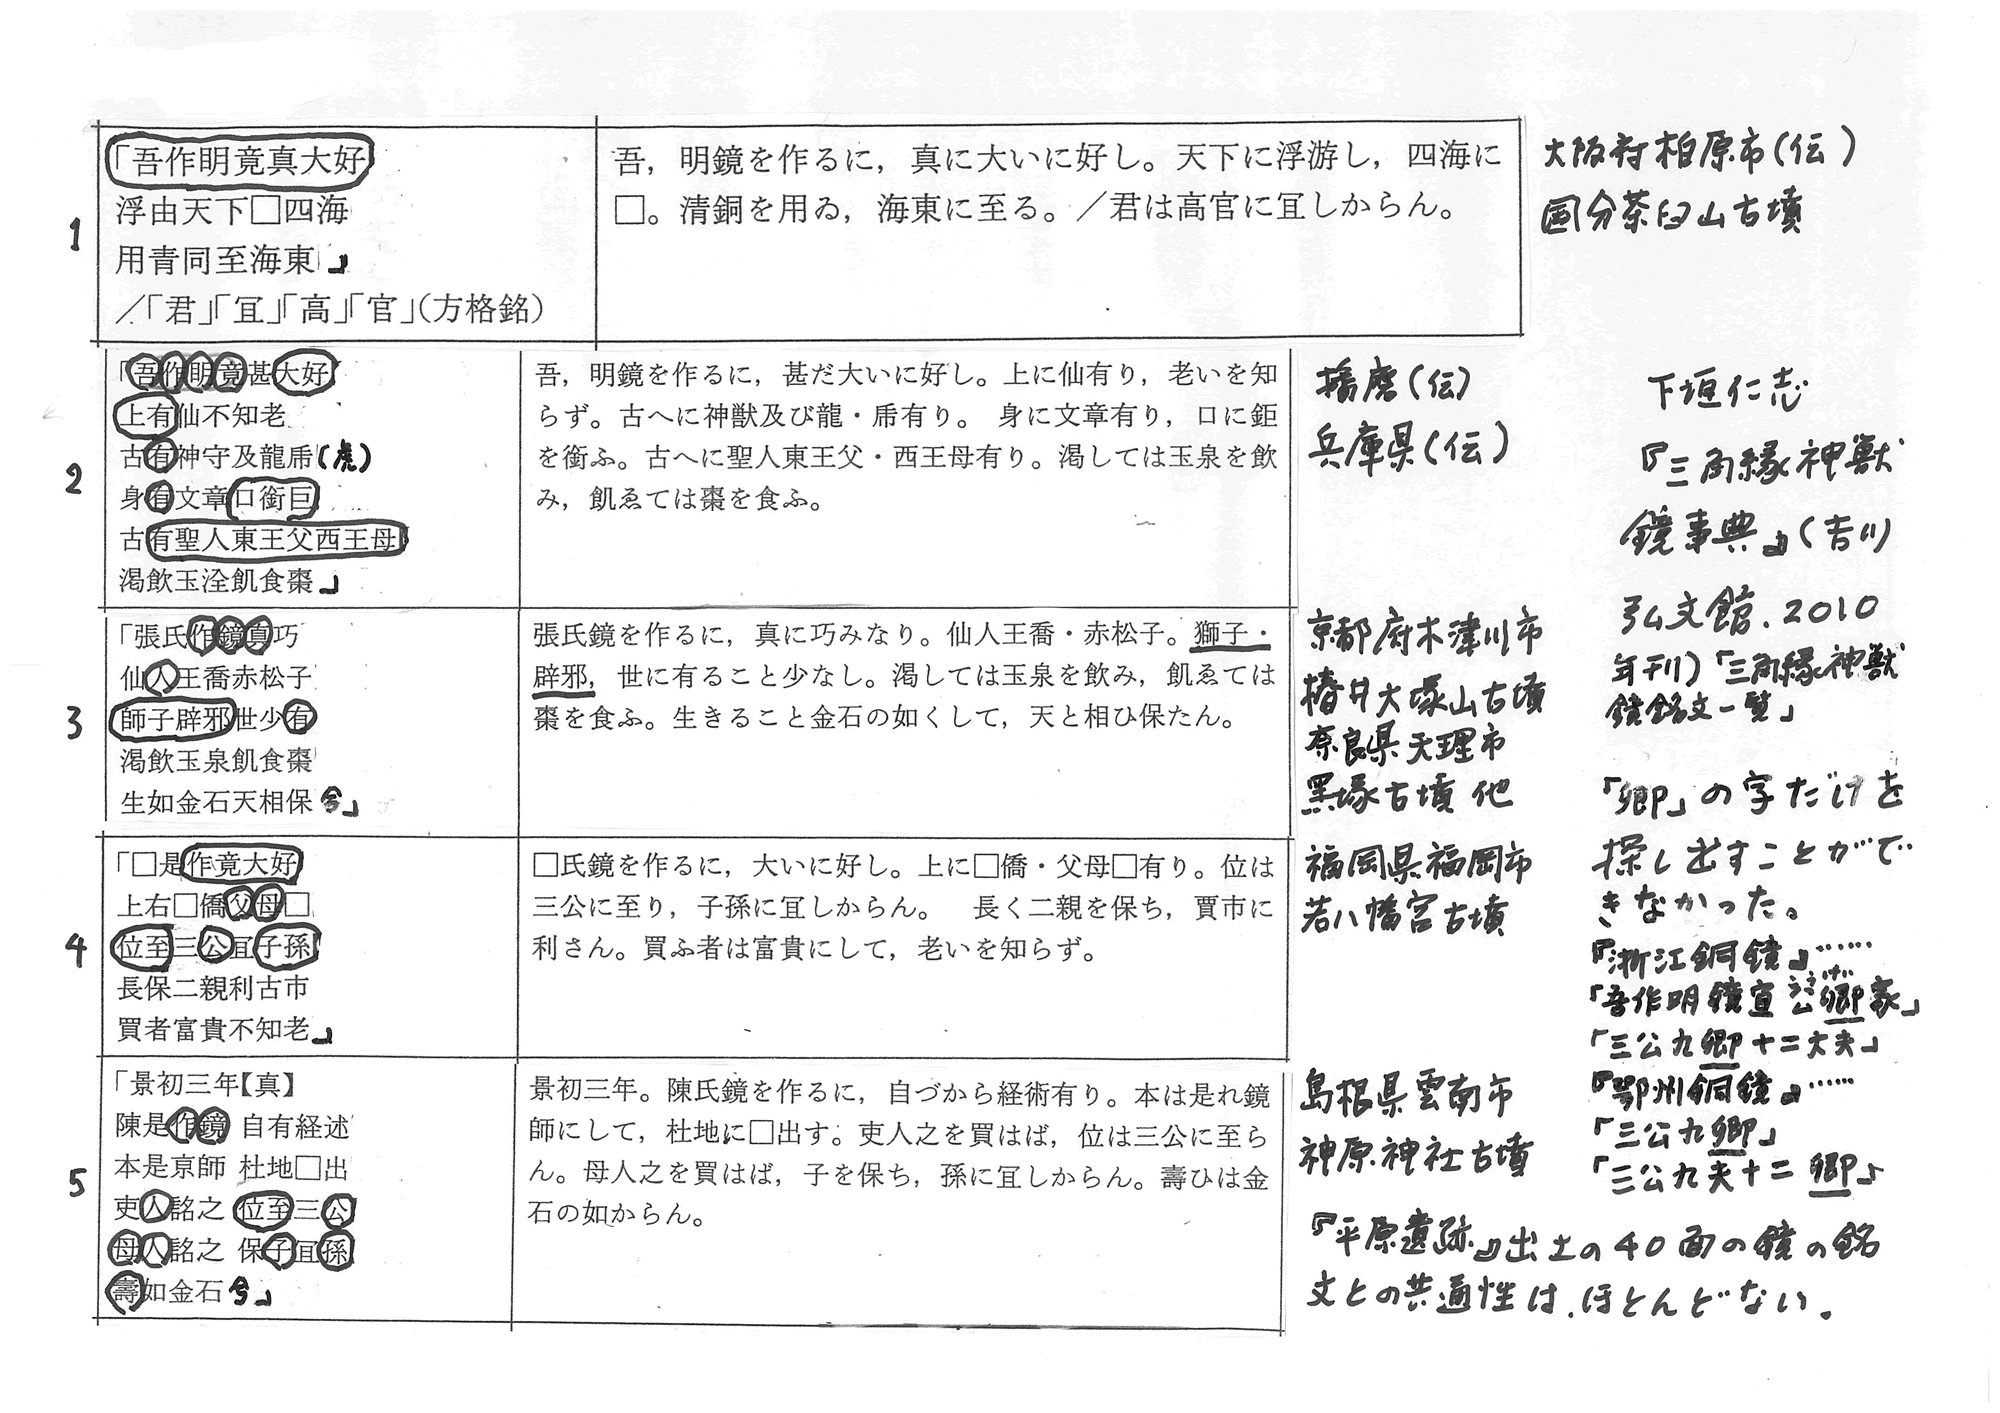 1
「吾作明竟真大好
浮由天下□四海
用青同至海東」
／「君」「冝」「高」「官」（方格銘）
吾，明鏡を作るに，真に大いに好し。天下に浮游し，四海に
□。清銅を用ゐ，海東に至る。／君は高官に冝しからん。
大阪府柏原市（伝）
国分茶臼山古墳
2
「吾作明竟甚大好
上有仙不知老
古有神守及龍乕（虎）
身有文章口銜巨
古有聖人東王父西王母
渇飲玉洤飢食棗」
吾，明鏡を作るに，甚だ大いに好し。上に仙有り，老いを知
らず。古へに神獣及び龍・乕有り。 身に文章有り，口に鉅
を銜ふ。古へに聖人東王父・西王母有り。渇しては玉泉を飲
み，飢ゑては棗を食ふ。
播磨（伝）
兵庫県（伝）
3
「張氏作鏡真巧
仙人王喬赤松子
師子辟邪世少有
渇飲玉泉飢食棗
生如金石天相保兮」
張氏鏡を作るに，真に巧みなり。仙人王喬・赤松子。獅子・
辟邪，世に有ること少なし。渇しては玉泉を飲み，飢ゑては
棗を食ふ。生きること金石の如くして，天と相ひ保たん。
京都府木津川市
椿井大塚山古墳
奈良県天理市
黒塚古墳 他
4
「□是作竟大好
上右□僑父母□
位至三公冝子孫
長保二親利古市
買者富貴不知老」
□氏鏡を作るに，大いに好し。上に□僑・父母□有り。位は
三公に至り，子孫に冝しからん。　長く二親を保ち，賈市に
利さん。買ふ者は富貴にして，老いを知らず。
福岡県福岡市
若八幡宮古墳
5
「景初三年【真】
陳是作鏡 自有経述
本是京師 杜地□出
吏人詺之 位至三公
母人詺之 保子冝孫
壽如金石兮」
景初三年。陳氏鏡を作るに，自づから経術有り。本は是れ鏡
師にして，杜地に□出す。吏人之を買はば，位は三公に至ら
ん。母人之を買はば，子を保ち，孫に冝しからん。壽ひは金
石の如からん。
島根県雲南市
神原神社古墳
下垣仁志
『三角縁神獣
鏡事典』（吉川
弘文館．2010
年刊）「三角縁神獣
鏡銘文一覧」
「卿」の字だけを
探し出すことがで
きなかった。
『浙江銅鏡』……
「吾作明鏡宣公卿家」
「三公九卿十二大夫」
『鄂州銅鏡』……
「三公九卿」
「三公九夫十二卿」
『平原遺跡』出土の40面の鏡の銘
文との共通性は．ほとんどない．